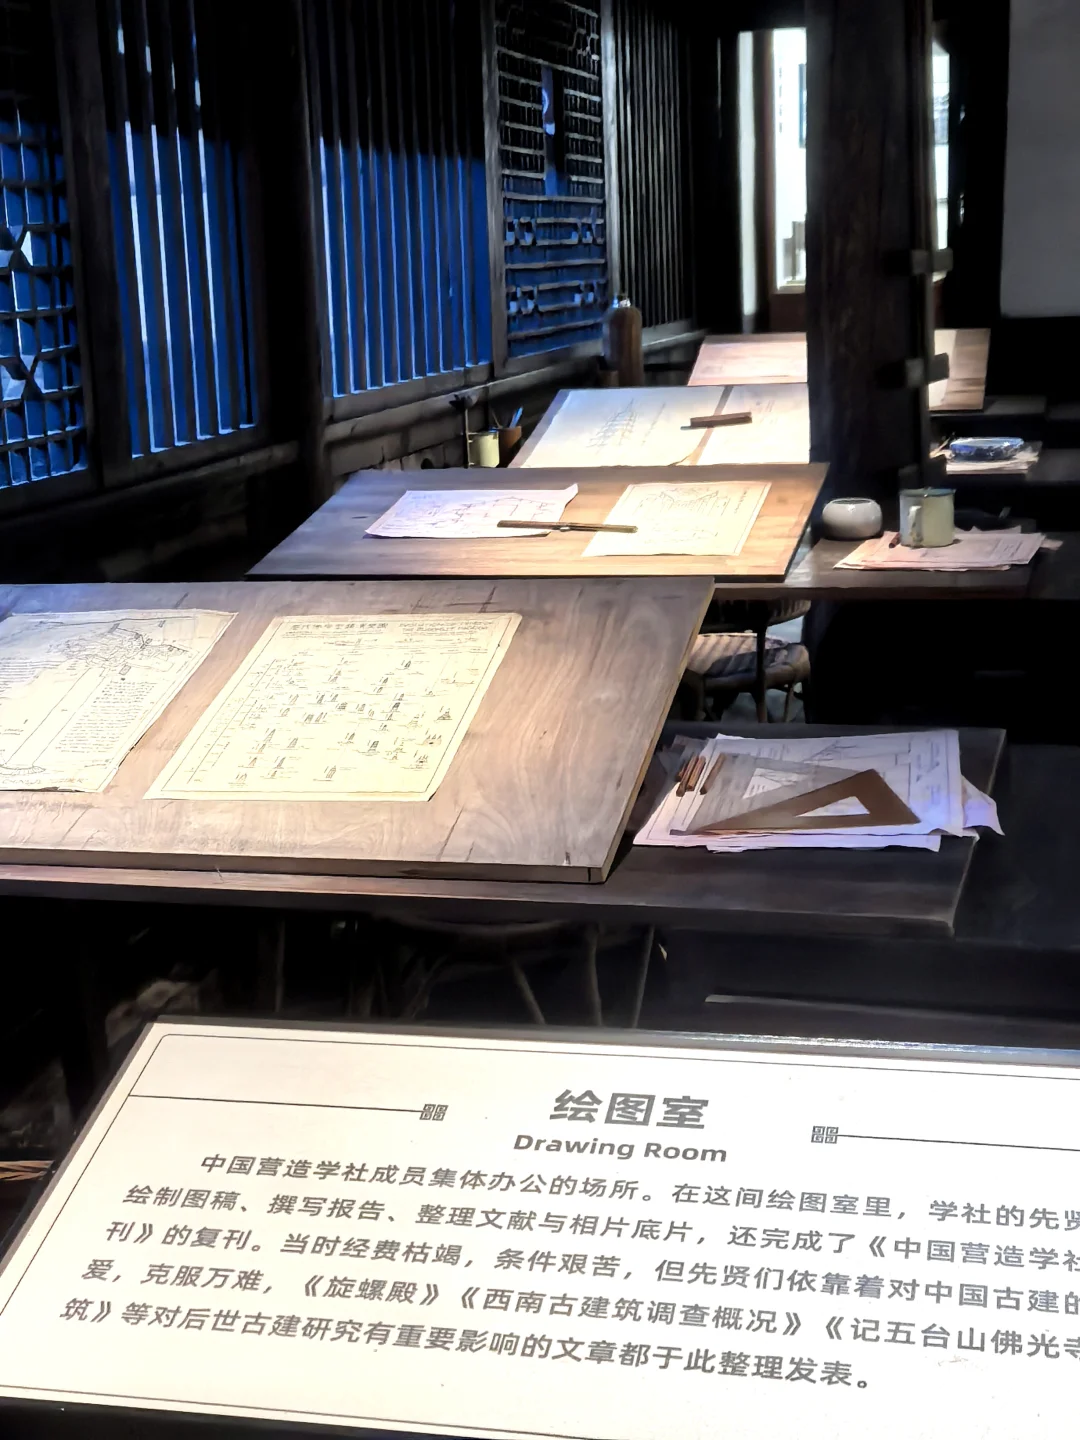 绘图室
Drawing Room
中国营造学社成员集体办公的场所。在这间绘图室里，学社的先贤
绘制图稿、撰写报告、整理文献与相片底片，还完成了《中国营造学社
刊》的复刊。当时经费枯竭，条件艰苦，但先贤们依靠着对中国古建的
爱，克服万难，《旋螺殿》《西南古建筑调查概况》《记五台山佛光寺
筑》等对后世古建研究有重要影响的文章都于此整理发表。